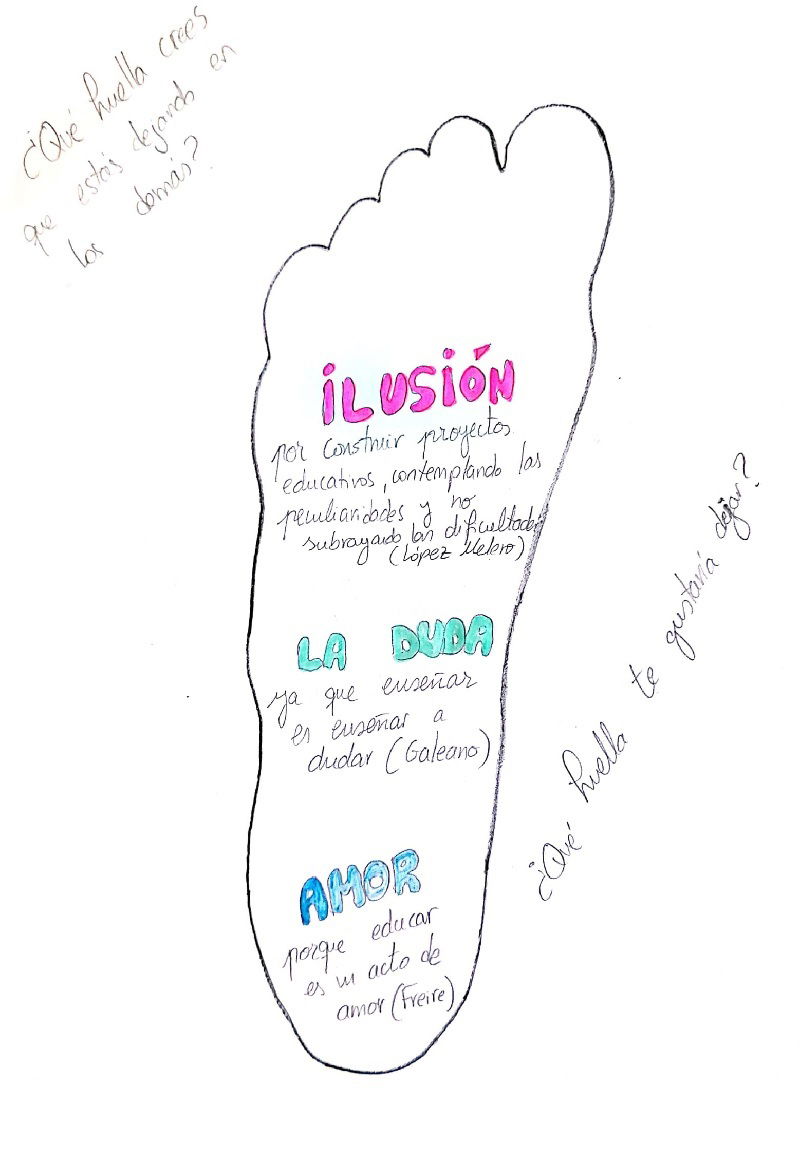 ¿Qué huella crees
que estás dejando en
los demás?
ILUSIÓN
por construir proyectos
educativos, contemplando las
peculiaridades y no
subrayando las dificultades
(López Melero)
LA DUDA
ya que enseñar
es enseñar a
dudar (Galeano)
AMOR
porque educar
es un acto de
amor (Freire)
¿Qué huella te gustaría dejar?